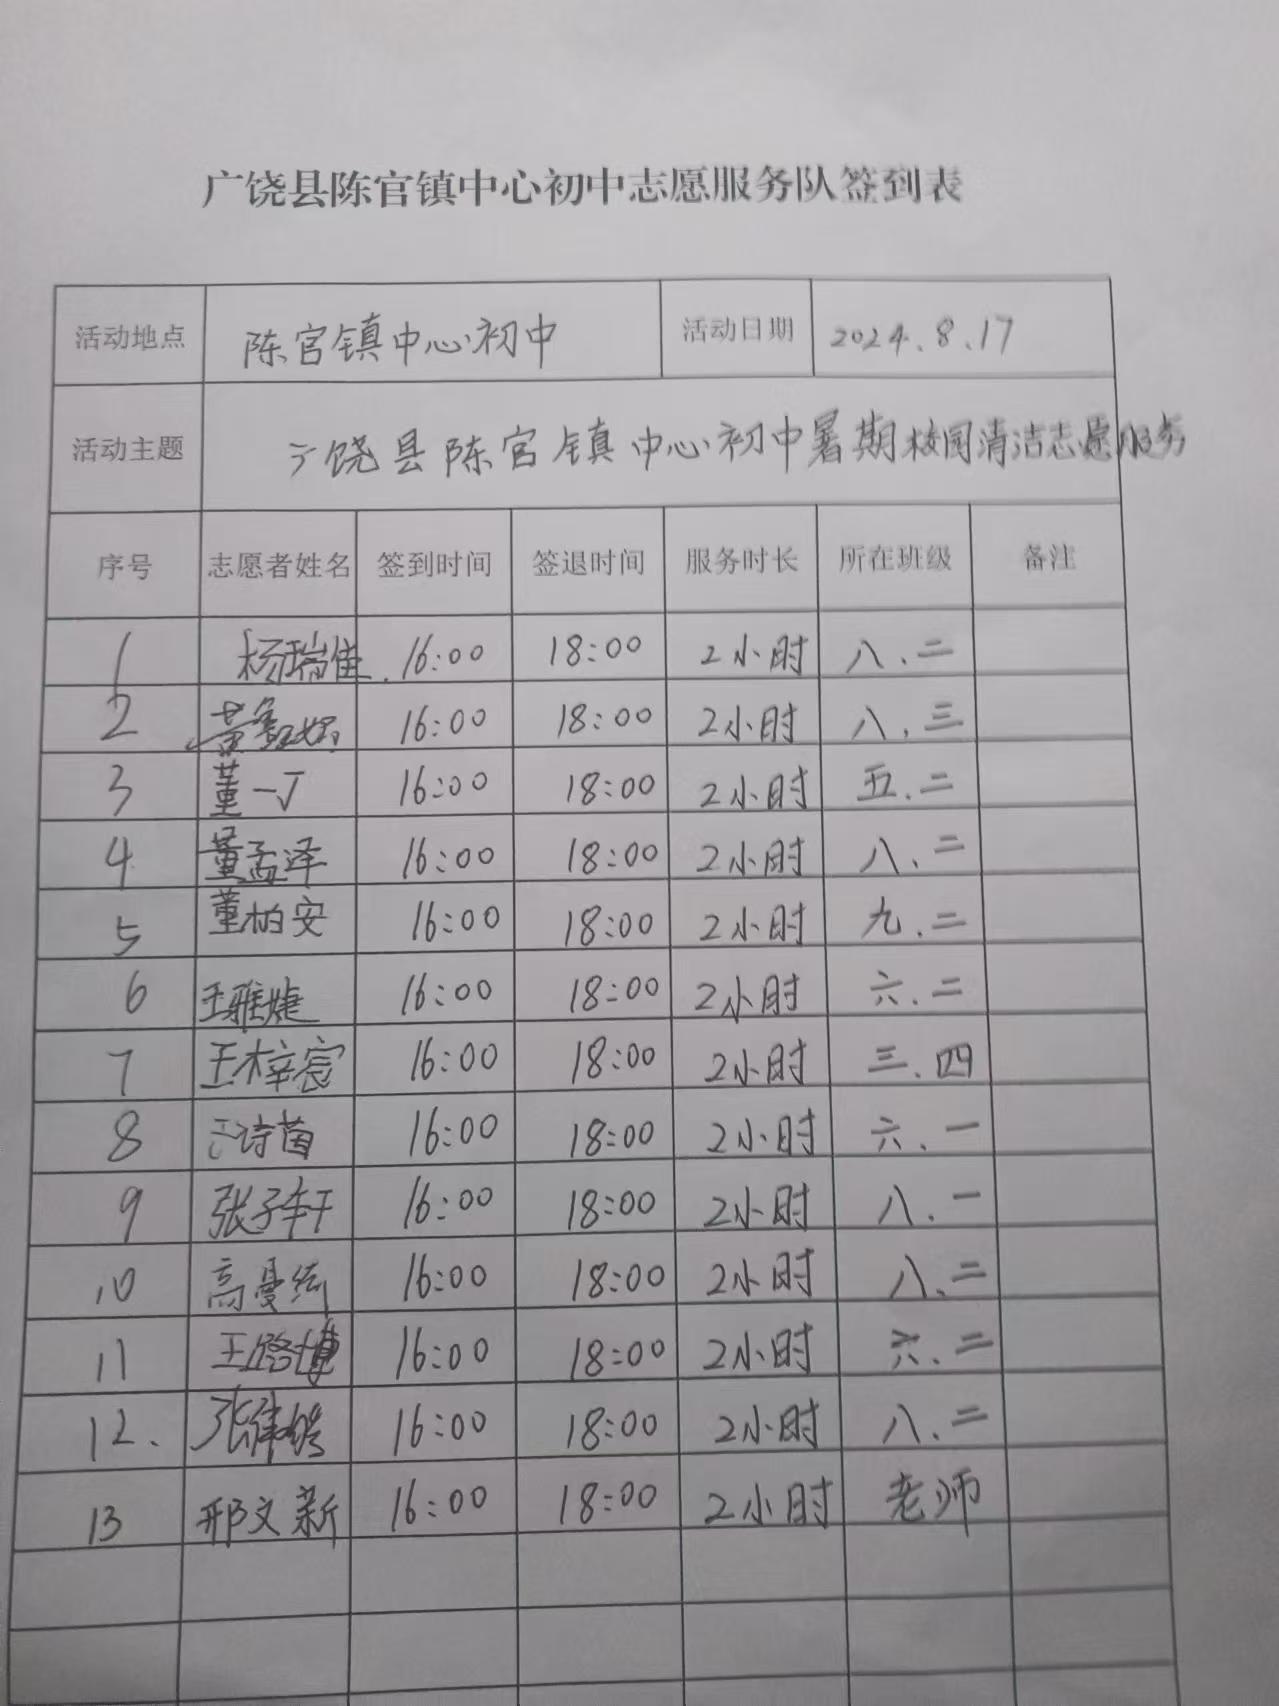 广饶县陈官镇中心初中志愿服务队签到表
活动地点 陈官镇中心初中 活动日期 2024.8.17
活动主题 广饶县陈官镇中心初中暑期校园清洁志愿服务
序号 志愿者姓名 签到时间 签退时间 服务时长 所在班级 备注
1 杨瑞佳 16:00 18:00 2小时 八.二
2 16:00 18:00 2小时 八.三
3 董一丁 16:00 18:00 2小时 五.二
4 董孟泽 16:00 18:00 2小时 八.二
5 董柏安 16:00 18:00 2小时 九.二
6 王雅婕 16:00 18:00 2小时 六.二
7 王梓宸 16:00 18:00 2小时 三.四
8 诗茵 16:00 18:00 2小时 六.一
9 张子轩 16:00 18:00 2小时 八.一
10 高曼 16:00 18:00 2小时 八.二
11 王路博 16:00 18:00 2小时 六.二
12. 张 16:00 18:00 2小时 八.二
13 邢文新 16:00 18:00 2小时 老师